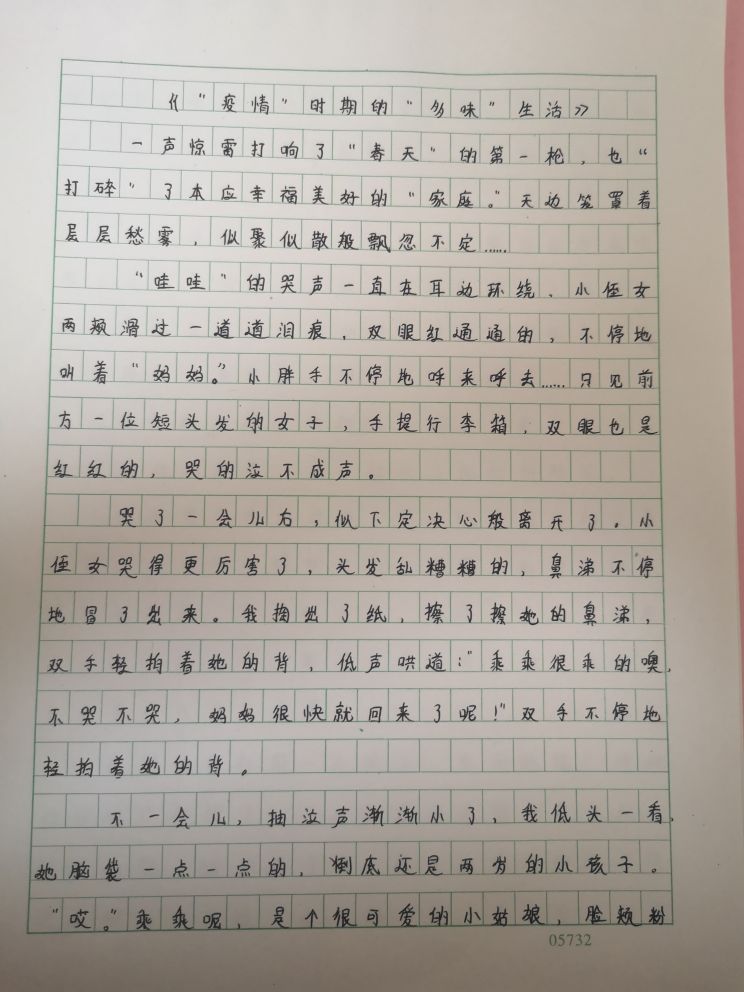 《“疫情”时期的“多味”生活》
一声惊雷打响了“春天”的第一枪，也“
打碎”了本应幸福美好的“家庭。”天边笼罩着
层层愁雾，似聚似散般飘忽不定……
“哇哇”的哭声一直在耳边环绕、小侄女
两颊滑过一道道泪痕，双眼红通通的，不停地
叫着“妈妈。”小胖手不停地呼来呼去……只见前
方一位短头发的女子，手提行李箱，双眼也是
红红的，哭的泣不成声。
哭了一会儿右，似下定决心般离开了。小
侄女哭得更厉害了，头发乱糟糟的，鼻涕不停
地冒了出来。我掏出了纸，擦了擦她的鼻涕，
双手轻拍着她的背，低声哄道：“乖乖很乖的噢，
不哭不哭，妈妈很快就回来了呢！”双手不停地
轻拍着她的背。
不一会儿，抽泣声渐渐小了，我低头一看，
她脑袋一点一点的，倒底还是两岁的小孩子。
“哎。”乖乖呢，是个很可爱的小姑娘，脸颊粉
05732